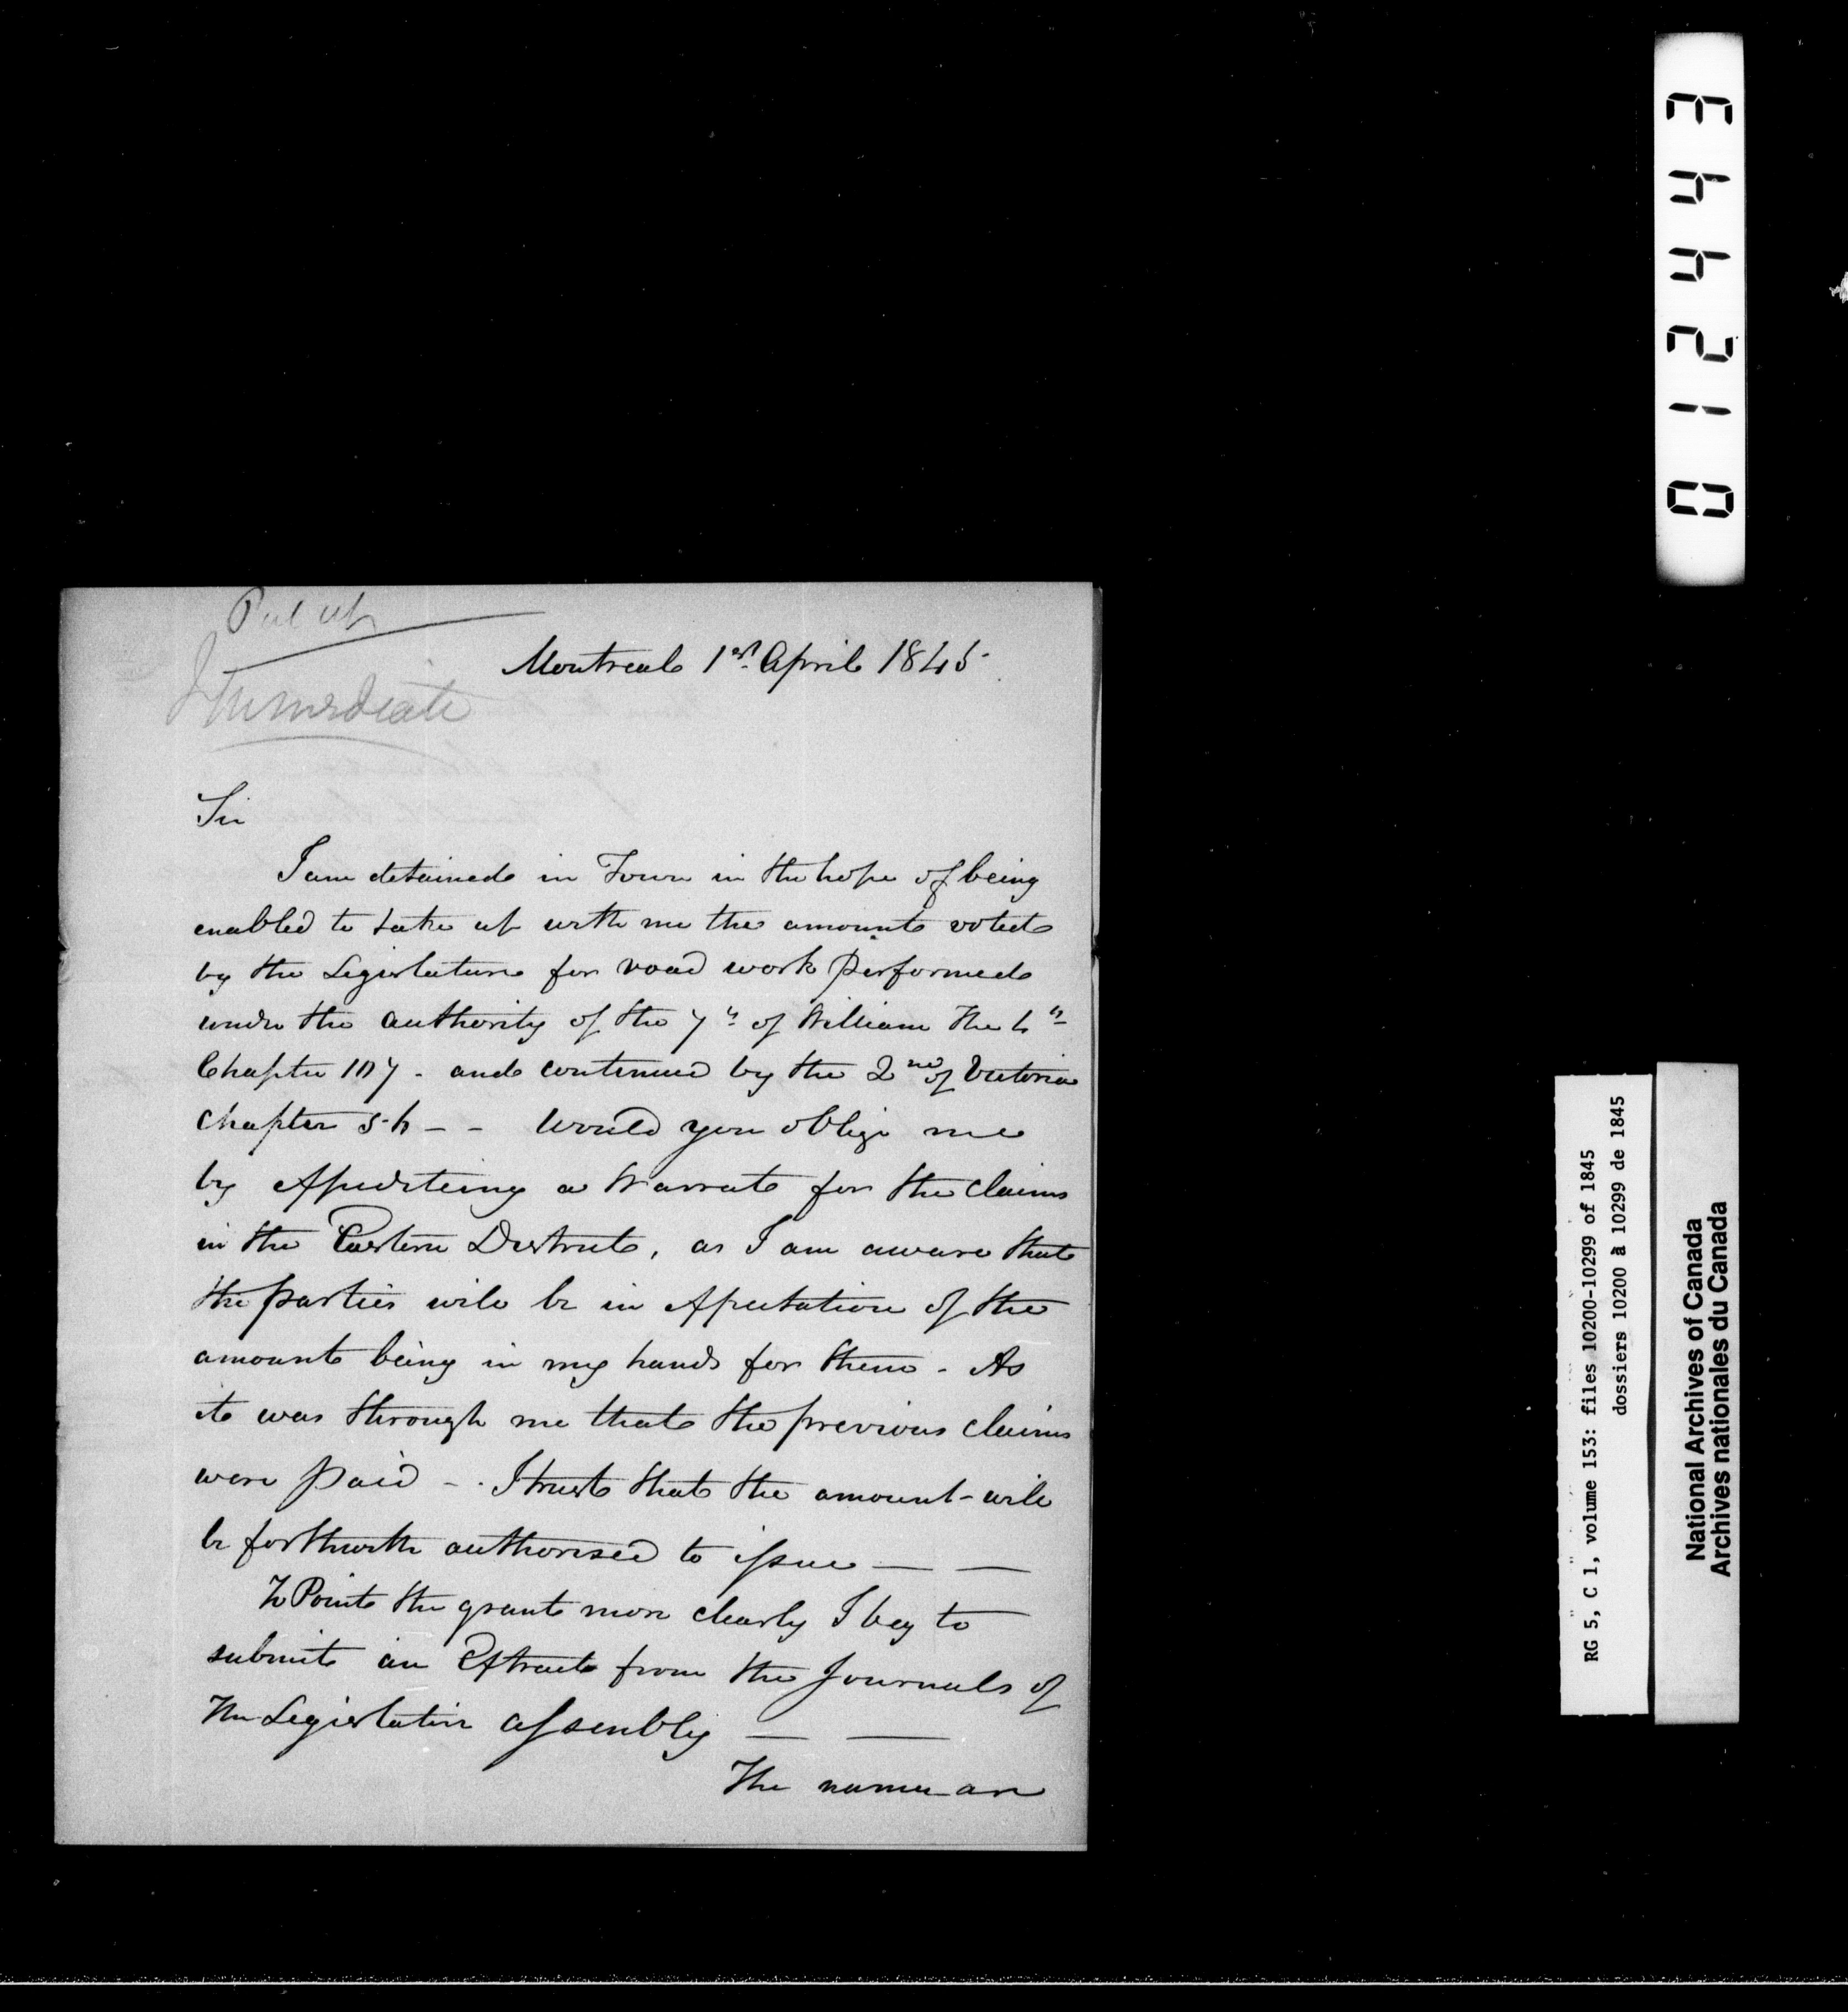 Put up
Immediate
Montreal 1st April 1845
Sir
I am detained in Town in the hope of being
enabled to take up with me the amount voted
by the Legislature for road work performed
under the authority of the 7th of William the 4th
Chapter 107 - and continued by the 2nd of Victoria
Chapter 54 - - Would you oblige me
by expediteing a Warrate for the claims
in the Eastern District, as I am aware that
the parties will be in expectation of the
amount being in my hands for them - As
it was through me that the previous claims
were paid - . I trust that the amount will
be forthwith authorised to issue — —
To Point the grant more clearly I beg to
submit an Extract from the Journals of
The Legislative Assembly — —
The name
012443
RG 5, C 1, volume 153: files 10200-10299 of 1845
dossiers 10200 à 10299 de 1845
National Archives of Canada
Archives nationales du Canada